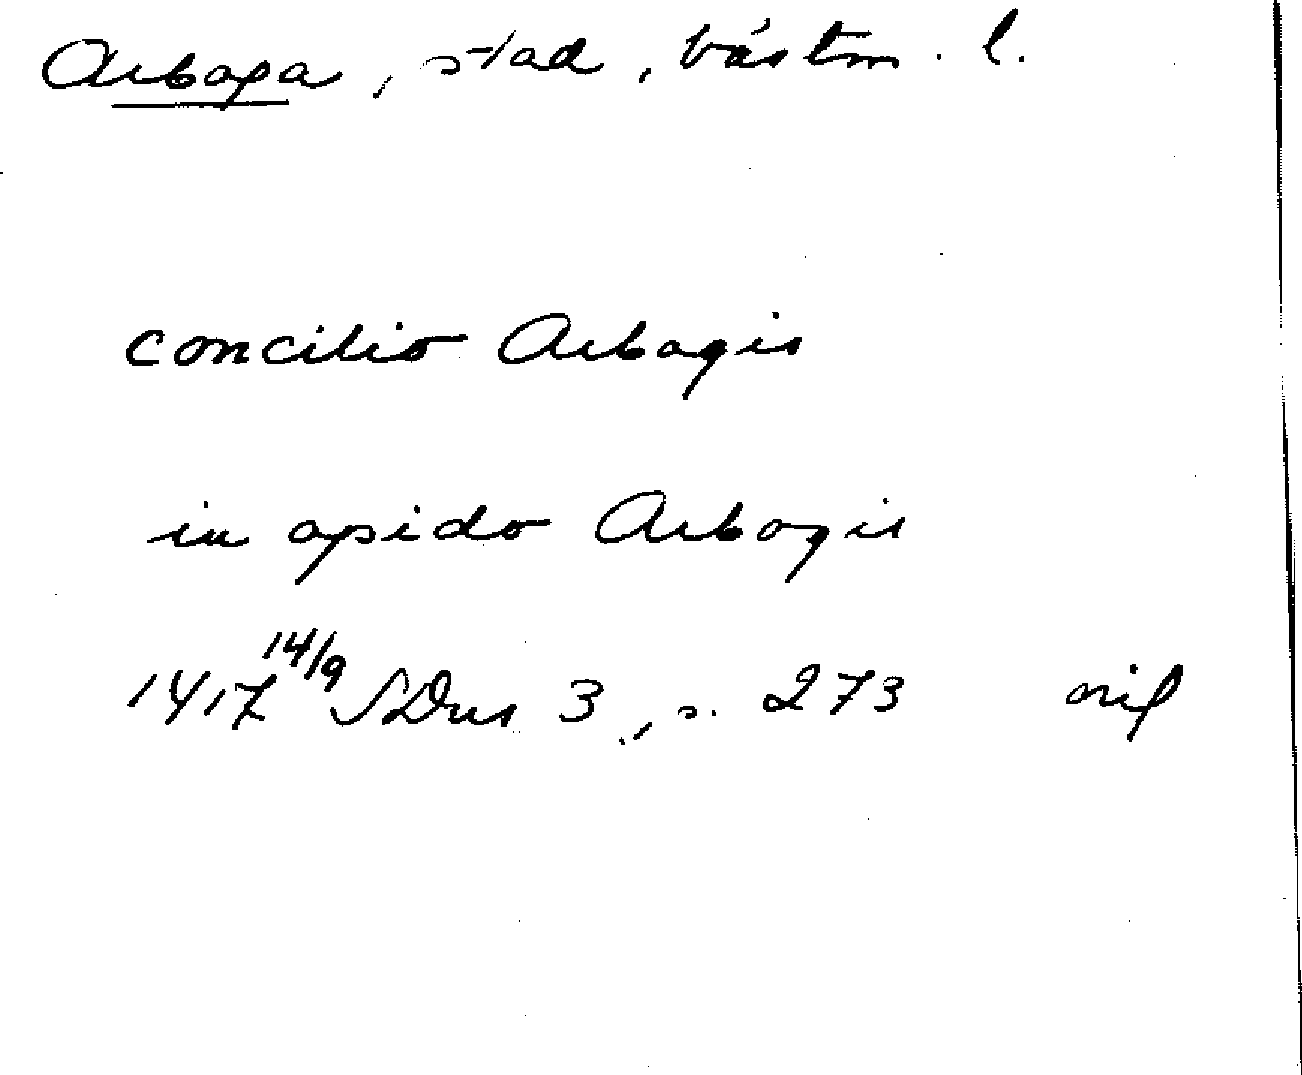 Arboga, stad, västm. l.
concilio Arbogis
in opido Arbogis
1417 14/9 SDns 3, s. 273 orig